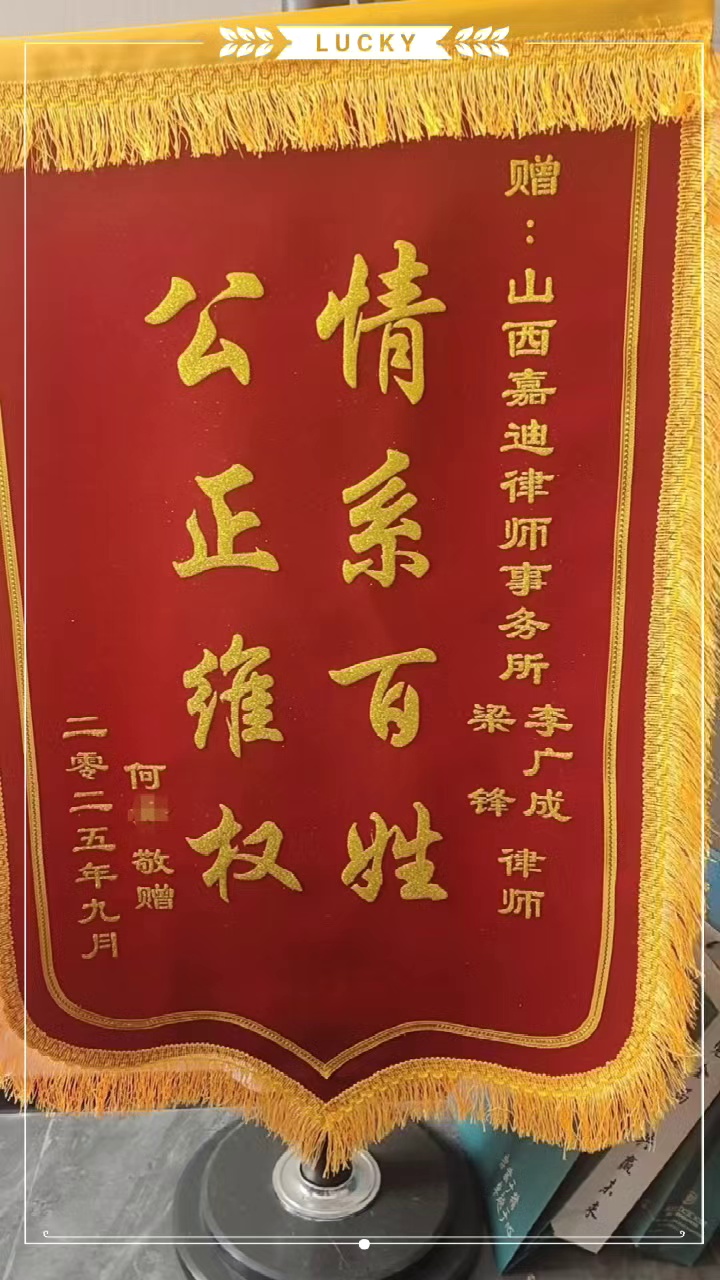 LUCKY
赠：山西嘉迪律师事务所
李广成
梁锋
律师
情系百姓
公正维权
何
敬赠
二零二五年九月
赢未来